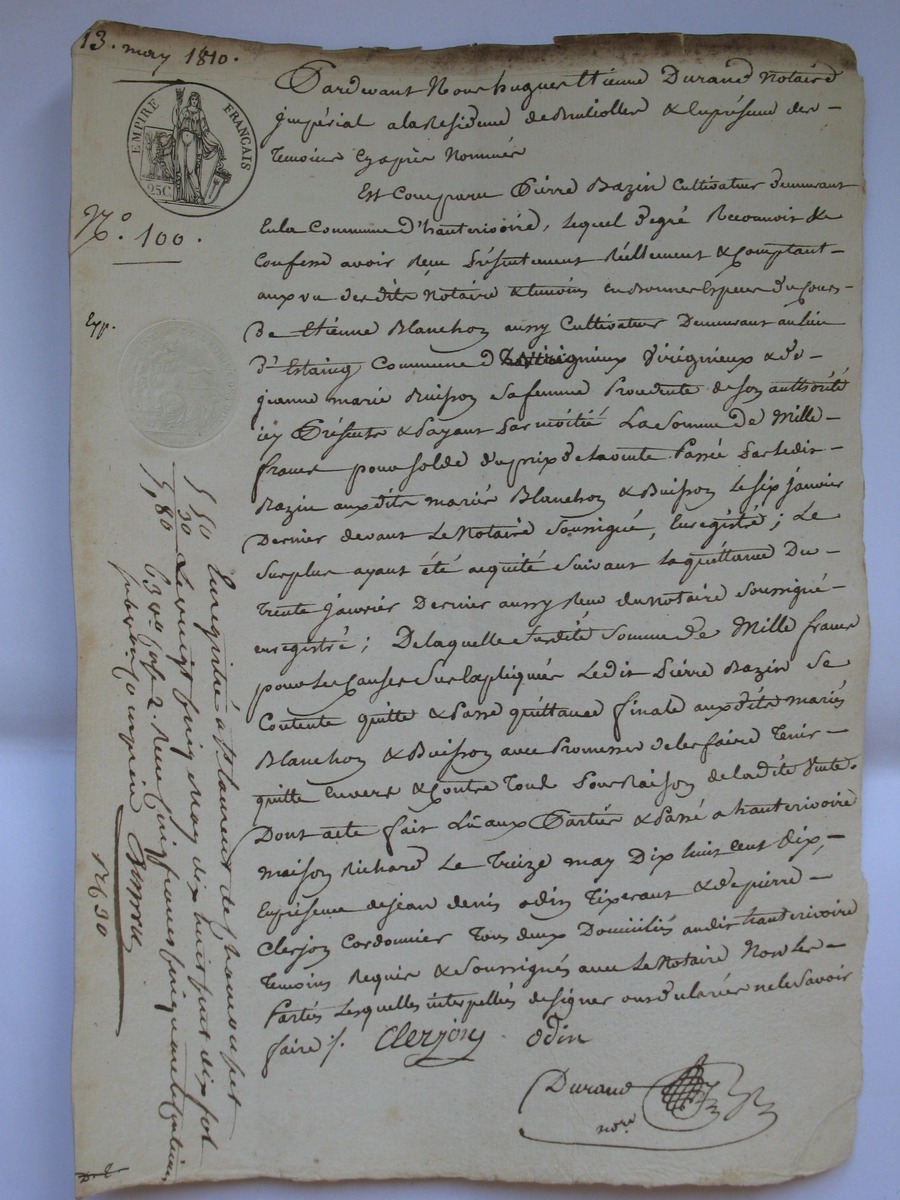 13. may 1810.
EMPIRE FRANÇAIS
25C
N.º 100.
Exp.
Pardevant Nous hugues Etienne Durand Notaire
jmpérial ala Residence de Brullioles & Enprésence des
temoins Cyaprès Nommés
Est Comparu Pierre Bazin Cultivateur demeurant
Enla Commune d'hauterivoire, lequel degré Reconnoit &
Confesse avoir Reçu Présentement Réellement & Comptant
aux vu desdits Notaire & temoins en bonnes Especes du Cours
De Etienne Blanchon aussy Cultivateur Demeurant aulieu
d'Estaing Commune d' Virigneux & de
jeanne marie Buisson safemme Procedente deson authorité
icy Présents & Payant Par moitié La Somme de Mille
francs pour solde duprix de lavente Passée Parledit
Bazin auxdits mariés Blanchon & Buisson le six janvier
Dernier devant Le Notaire Soussigné, Enregistré; Le
Surplus ayant été acquité Suivant la quittance Du
trente janvier Dernier aussy Reçu du Notaire soussigné
enregistré; De laquelle Susdite Somme de Mille francs
pour les Causes Sus Expliquées Ledit Pierre Bazin Se
Contente quitte & Passe quittance finale auxdits mariés
Blanchon & Buisson avec Promesse de les faire tenir
quitte Envers & Contre tous Pour Raison de ladite Vente.
Dont acte fait Lû aux Parties & Passé a hauterivoire
maison Richard Le Treize may Dix huit Cent Dix,
Enprésence de jean denis odin tixerant & de pierre
Clerjon Cordonnier tous deux Domiciliés audit hauterivoire
temoins Requis & Soussignés avec Le Notaire Non les
Parties Lesquelles interpellées de signer ont déclarées nele Savoir
faire ./.
Clerjon odin
Durand
nore
5,50
30
5,80
Enregistré a St laurent de Chamousset
Le vingt cinq may dix huit cent dix fol
63 vo Case 2. Reçu cinq francs cinquante centimes
subvention comprise
12630